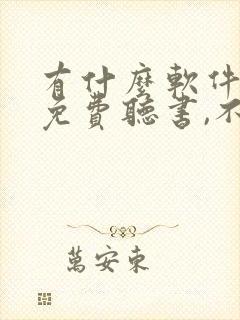 有什麽軟件
免費聽書,不
萬安東